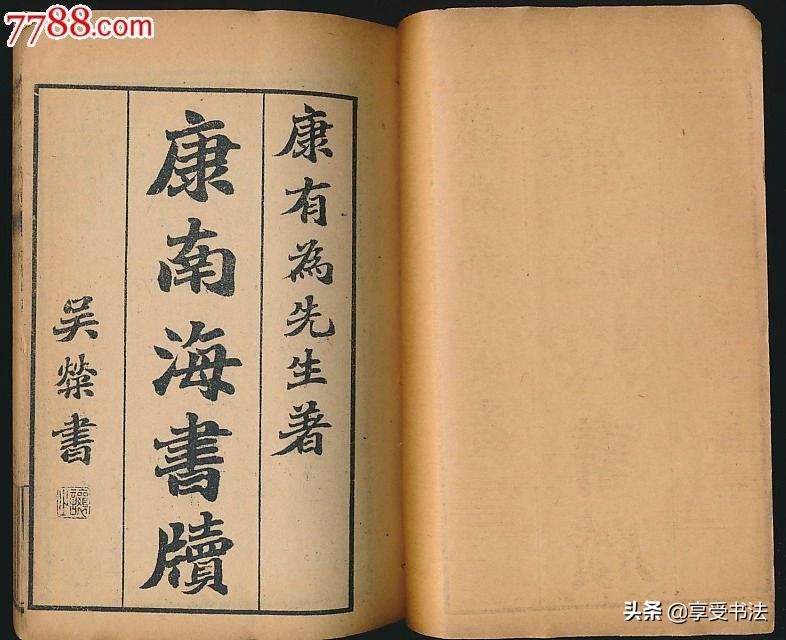 7788.com
康有為先生著
康南海書牘
吴榮書
头条 @享受书法